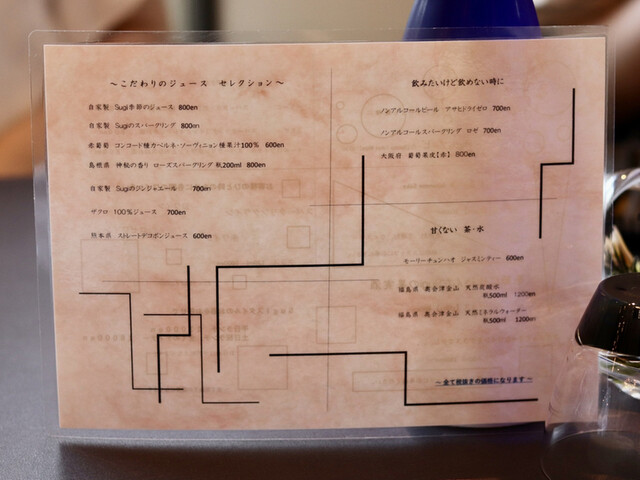 ～こだわりのジュース　セレクション～
自家製 Sugi季節のジュース 800en
自家製 Sugiのスパークリング 800en
赤葡萄 コンコード種カベルネ・ソーヴィニョン種果汁100% 600en
島根県 神秘の香り ローズスパークリング 瓶200ml 800en
自家製 Sugiのジンジャエール 700en
ザクロ 100%ジュース 700en
熊本県 ストレートデコポンジュース 600en
飲みたいけど飲めない時に
ノンアルコールビール アサヒドライゼロ 700en
ノンアルコールスパークリング ロゼ 700en
大阪府 葡萄果皮【赤】 800en
甘くない 茶・水
モーリーチュンハオ ジャスミンティー 600en
福島県 奥会津金山 天然炭酸水
瓶500ml 1200en
福島県 奥会津金山 天然ミネラルウォーター
瓶500ml 1200en
～全て税抜きの価格になります～